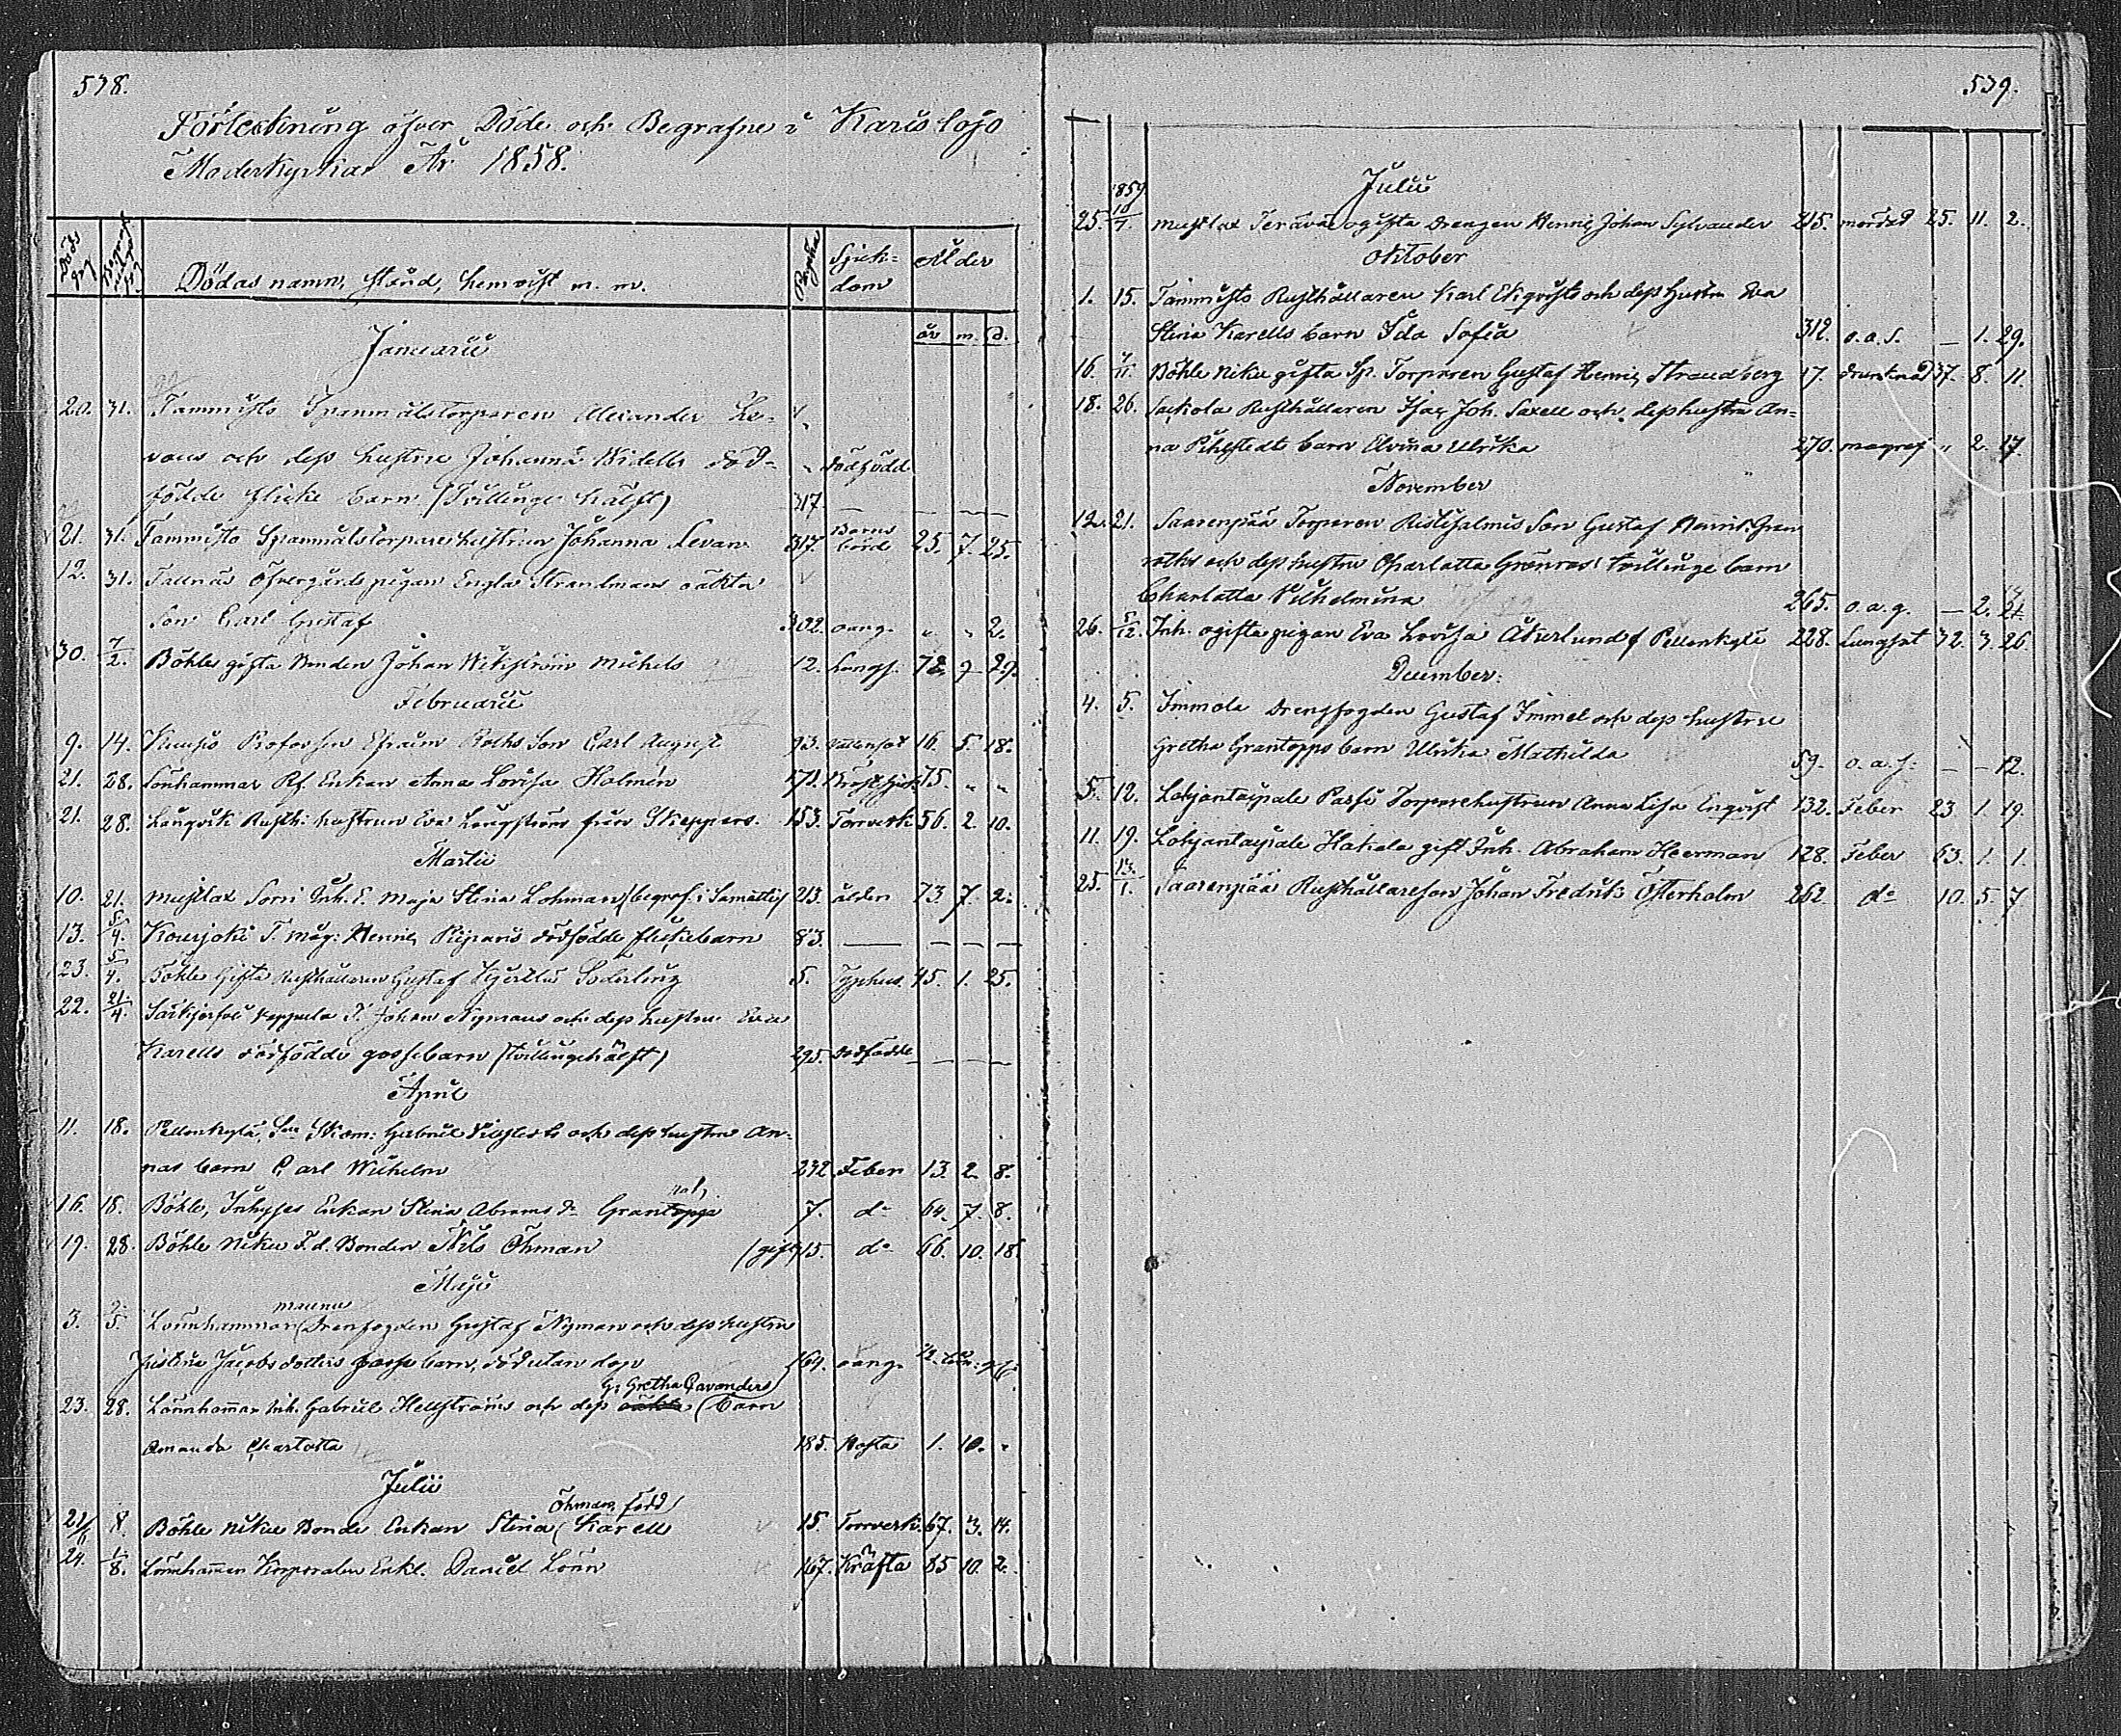 538.
Förteckning öfver Döde och Begrafne i Karislojo
Moderkyrka År 1858.
Döds dag Begrafnings dag Dödas namn, stånd, hemvist m. m. Pagina Sjukdom Ålder
år m. d.
Januarii
20. 31. Tammisto Spanmålstorparen Alexander Le-
vans och dess hustru Johanna Widells död- dödfödd
födde flicke barn (Tvillinge hälft) 317. — — —
21. 31. Tammisto Spanmålstorpare hustrun Johanna Levan 317. Barns börd 25. 7. 25.
12. 31. Tallnäs Öfvergårds pigan Engla Strandmans oäkta
Son Carl Gustaf 302. oang. " " 2.
30. 7/2. Böhle gifta Bonden Johan Wikström Michels 12. Lungs. 72. 9 29.
Februarii
9. 14. Efraim Roths Son Carl August 93. Vattensot 16. 5. 18.
21. 28. Lönhammar Rf. Enkan Anna Lovisa Holmén 171. Bröstsjuk. 75. " "
21. 28. Långvik Rusth: hustrun Eva Långström från Skeppars. 153. Torrverk. 56. 2. 10.
Martii
10. 21. Mustlax Sorri Inh. E. Maja Stina Lohman (begrof. i Samatti) 213. ålder 73. 7. 2.
13. 5/4. Kourjoki T. måg: Henric dödfödde flickebarn 83. — — — —
23. 5/4. Böhle Gifta Rusthållaren Gustaf Söderling 5. Typhus. 45. 1. 25.
22. 21/4. Särkjerfvi Keppula T. Johan Nymans och dess hustru Eva
Karells dödfödde gossebarn (tvillingehälft) 295. dödfödde — — —
April
11. 18. Pellonkylä, Skom: Gabriel och dess hustru An-
nas barn Carl Wilhelm 232 Feber 13. 2. 8.
16. 18. Böhle, Inhyses Enkan Stina Abrams dr Grantopps 7. do 64. 7. 8.
19. 28. Böhle Niku F.d. Bonden Nils Öhman (gift) 15. do 66. 10. 18.
Maji
3. 9/5. Lönnhammar Drengfogden Gustaf Nyman och dess hustru
Jacobs dotters gosse barn, död utan dop 164. oang.
G: Gretha Cavanders
23. 28. Lönnhammar Inh. Gabriel Hellströms och dess barn
Amanda Charlotta 185. Hosta 1. 10. "
Julii
Öhman, född
21/6 8. Böhle Niku Bonde Enkan Stina Karell 15. Torrverk. 67. 3. 14.
24. 1/8. Lönnhammar Korporalen Enkl. Daniel Lönn 167. Kräfta 85 10. 2.
539.
Julii
1859
25. 10/7. Mustlax Terävä ogifta Drengen Henric Johan Sylvander 215. mördad 25. 11. 2.
Oktober
1. 15. Tammisto Rusthållaren Karl Ekqvists och dess hustru Eva
Stina Karells barn Ida Sofia 312. o.a.s. — 1. 29.
16. 7/11. Böhle Niku gifta Sp. Torparen Gustaf Henric Strandberg 17. drunknad 37. 8. 11.
18. 26. Sackola Rusthållaren Isac Joh. Saxell och dess hustru An-
na Pihlstedts barn Alvina Ulrika 270. magref " 2. 17.
November
12. 21. Saarenpää Torparen Ristijalmis Son Gustaf Henric Grön
roths och dess hustru Charlotta Grönroos tvillinge barn
Charlotta Vilhelmina 265. o.a.g. — 2. 21.
26. 5/12. Inh. ogifta pigan Eva Lovisa Åkerlund f Pellonkylä 228. Lungsot 32. 3. 26.
December.
4. 5. Immola Drengfogden Gustaf Immel och dess hustru
Gretha Grantopps barn Ulrika Mathilda 59. o.a.s. — — 12.
5. 12. Lohjantaipale Passi Torpare hustrun Anna Lisa Enqvist 132. Feber 23 1. 19.
11. 19. Lohjantaipale Hakala gift Inh. Abraham Heerman 128. Feber 63. 1. 1.
25. 13/1. Saarenpää Rusthållareson Johan Fredrik Österholm 262. do 10. 5. 7